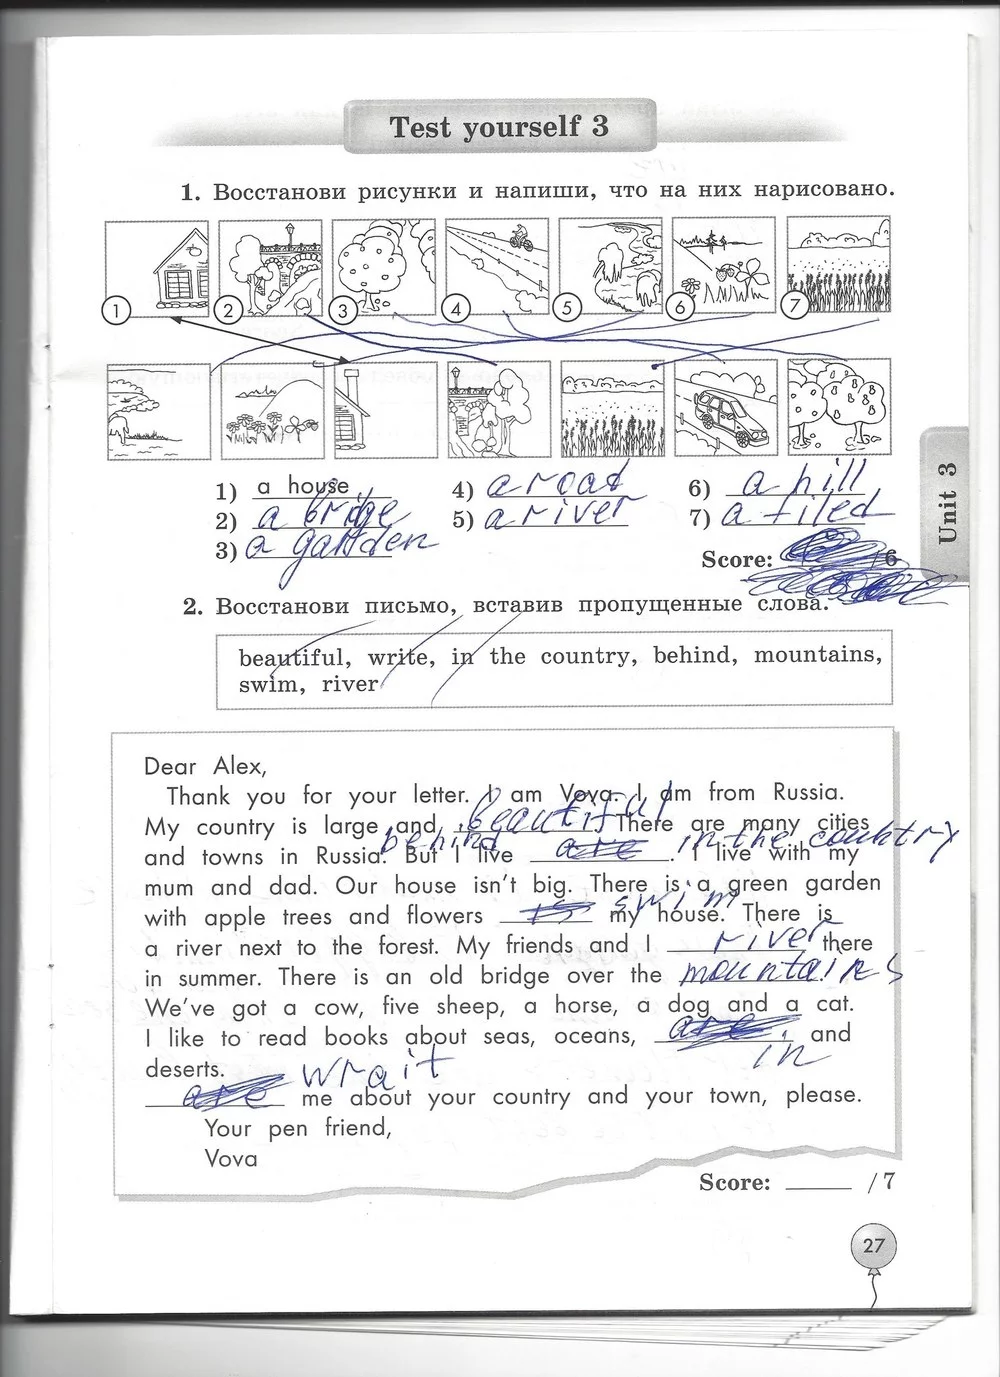 Test yourself 3
1. Восстанови рисунки и напиши, что на них нарисовано.
1 2 3 4 5 6 7
1) a house 4) a road 6) a hill
2) a bridge 5) a river 7) a filed
3) a garden
Score: /6
Unit 3
2. Восстанови письмо, вставив пропущенные слова.
beautiful, write, in the country, behind, mountains,
swim, river
Dear Alex,
Thank you for your letter. I am Vova. I am from Russia.
My country is large and beautiful. There are many cities
and towns in Russia. But I live behind are in the country. I live with my
mum and dad. Our house isn't big. There is a green garden
with apple trees and flowers is swim my house. There is
a river next to the forest. My friends and I river there
in summer. There is an old bridge over the mountains.
We've got a cow, five sheep, a horse, a dog and a cat.
I like to read books about seas, oceans, are in and
deserts.
are wrait me about your country and your town, please.
Your pen friend,
Vova
Score: /7
27